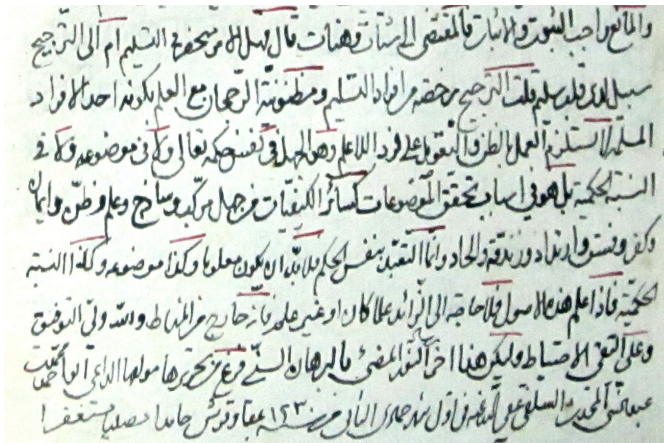 والمانع واجب الثبوت والاثبات فالمقتضى اثبات وهنات قال فهل الامر منحصر في التسليم ام الى الترجيح
سبيل لدى قلب سليم قلت الترجيح من خصه من افراد التسليم ومظنونية الرجحان مع العلم بكونه احد الافراد
المسلمة لا تستلزم العمل بالظن والتعويل على فرد اللاعلم وهو الجهل في نفس حكمه تعالى ولا في موضوعه ولا في
النسبة الحكمية بل هو في اسباب تحقق الموضوعات كسائر الكيفيات من جهل مركب وساذج وعلم وظن وايمان
وكفر وفسق وارتداد وزندقة والحاد وانما التعبد بنفس الحكم فلا بد ان يكون معلوما وكذا موضوعه وكذا النسبة
الحكمية فاذا علم هذه الاصول فلا حاجة الى الزائد علما كان او غير علم فانه خارج من المناط والله ولي التوفيق
وعلى التقي الاحتياط وليكن هذا اخر النور المضئ بالبرهان السني فرغ من تحريرها مولفها الداعي
عبد النبي في اول شهر جمادى الثاني من سنة حامدا مصليا مستغفرا